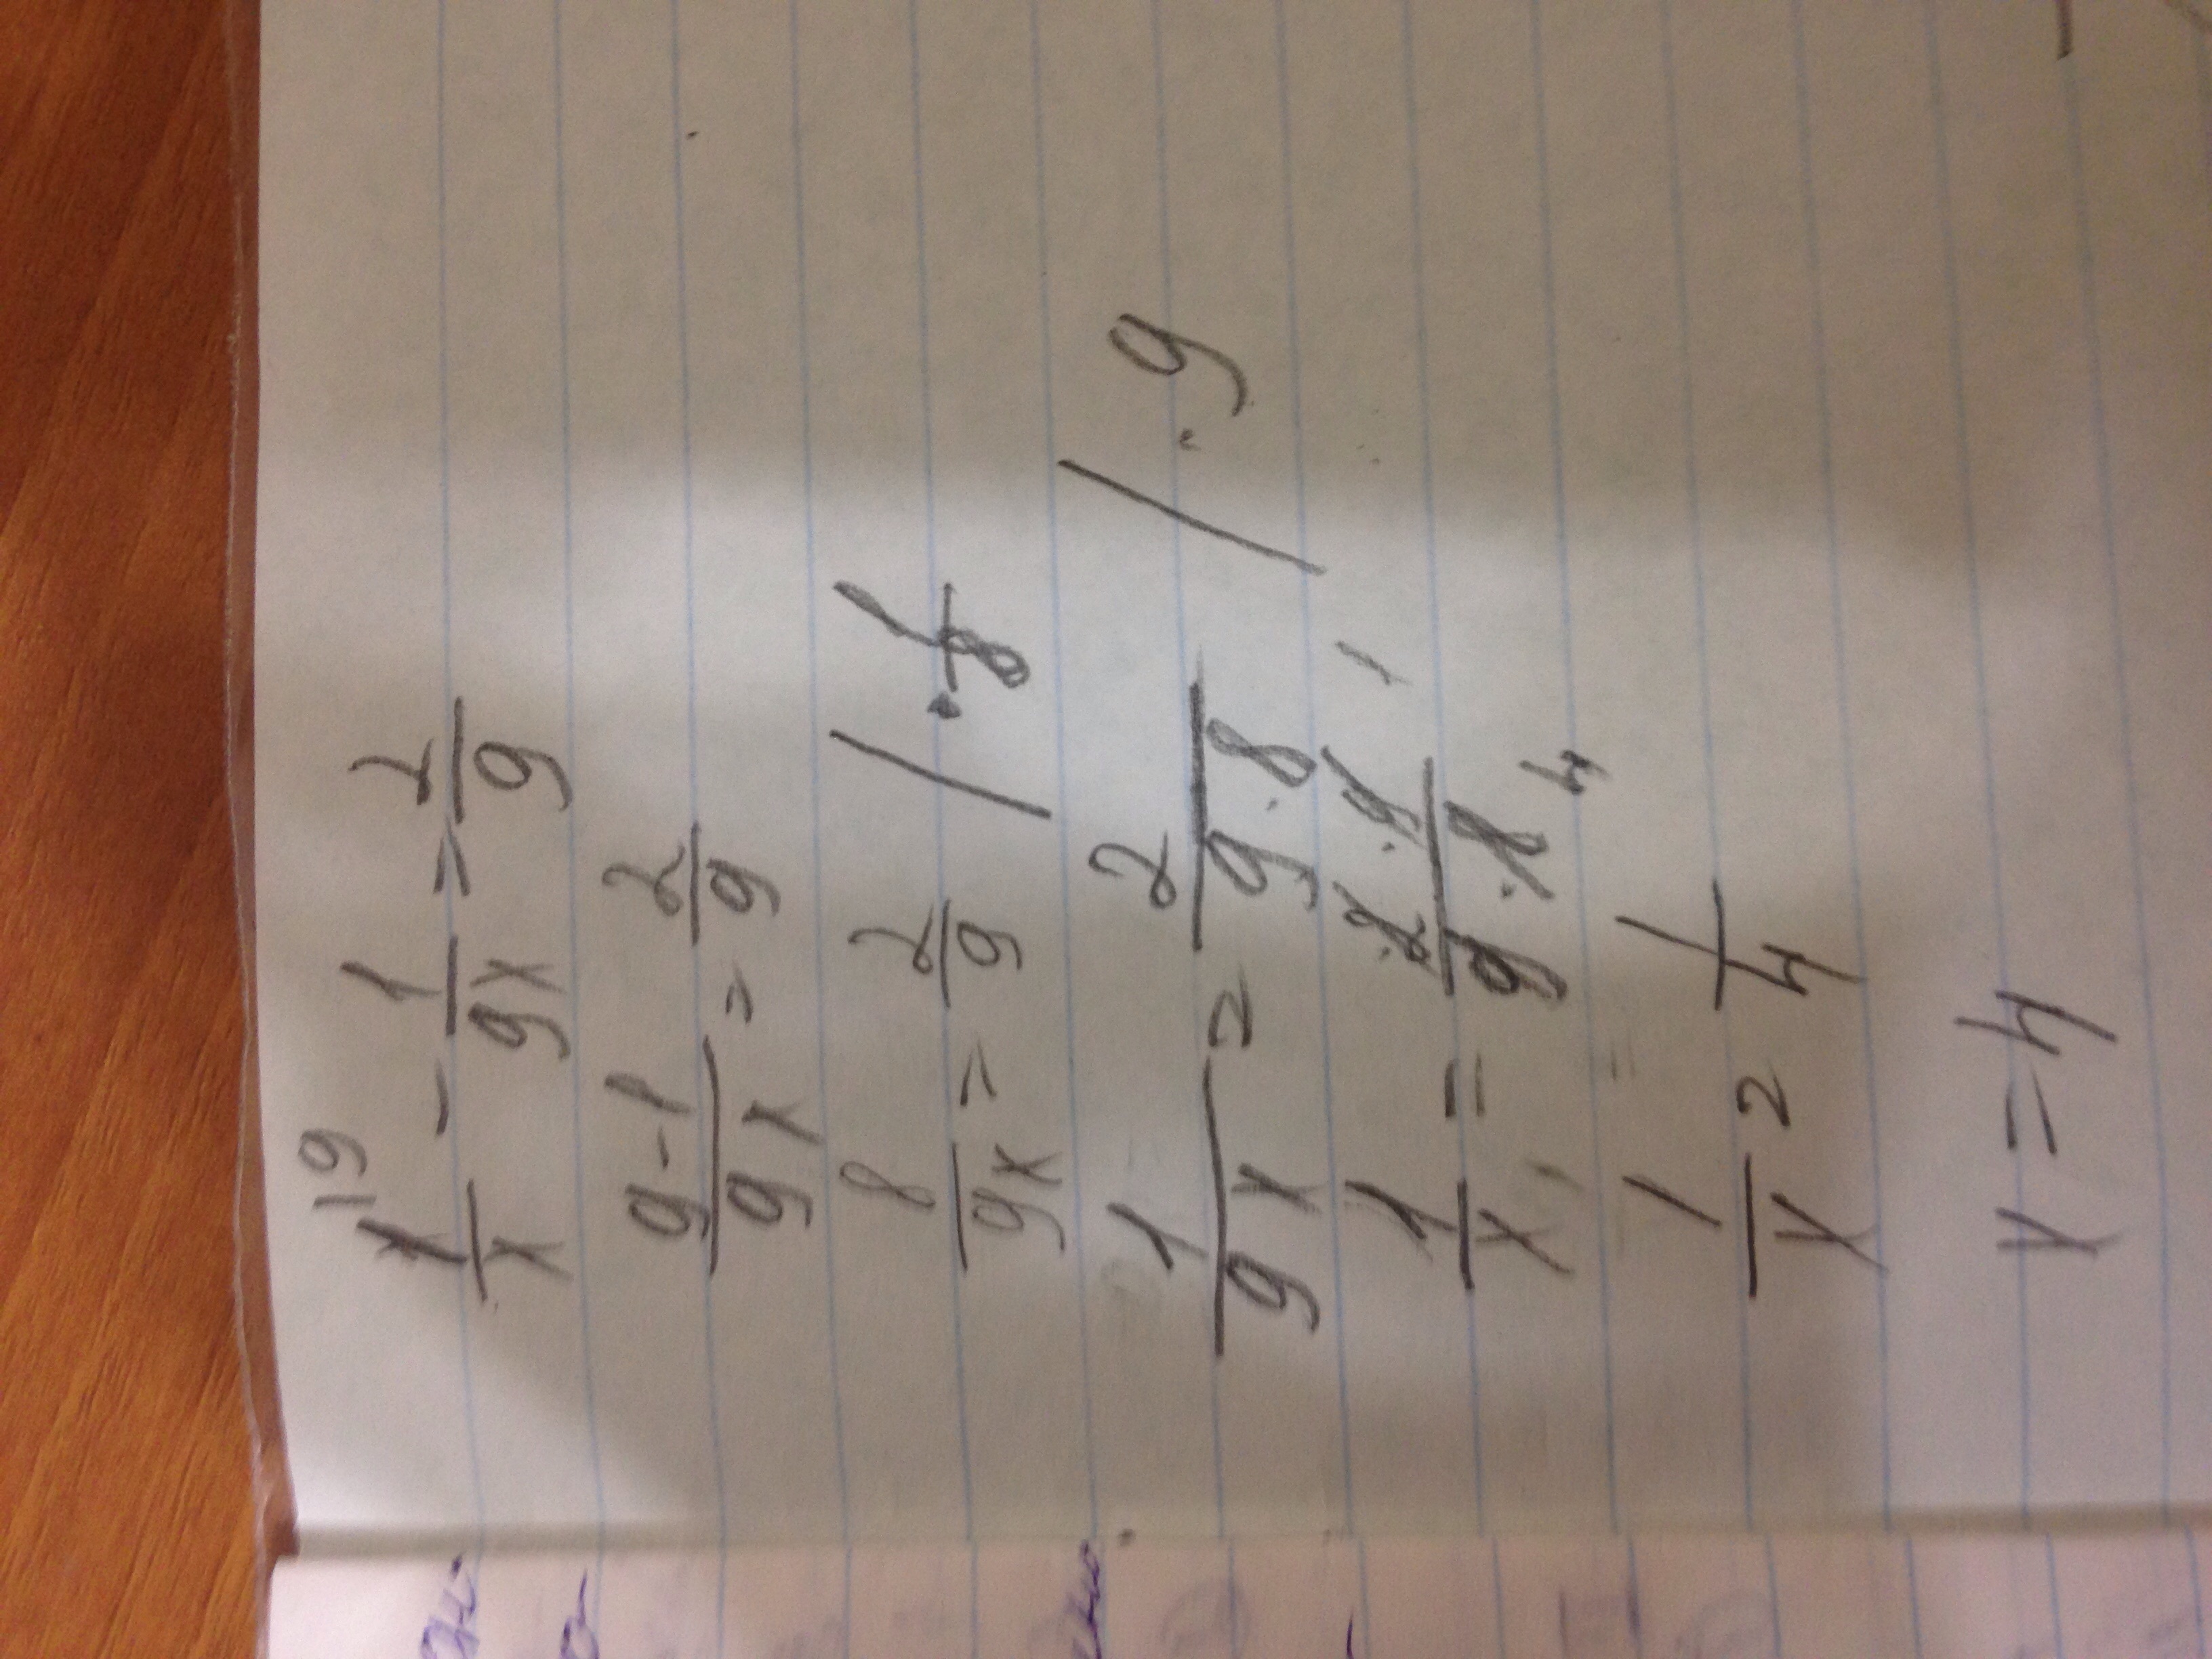 1/x |9 - 1/9x = 2/9
9-1/9x = 2/9
8/9x = 2/9 / · 1/8
1/9x = 2/9·8 / · 9
1/x = 2·9 1/9·8 4
1/x = 1/4
x = 4